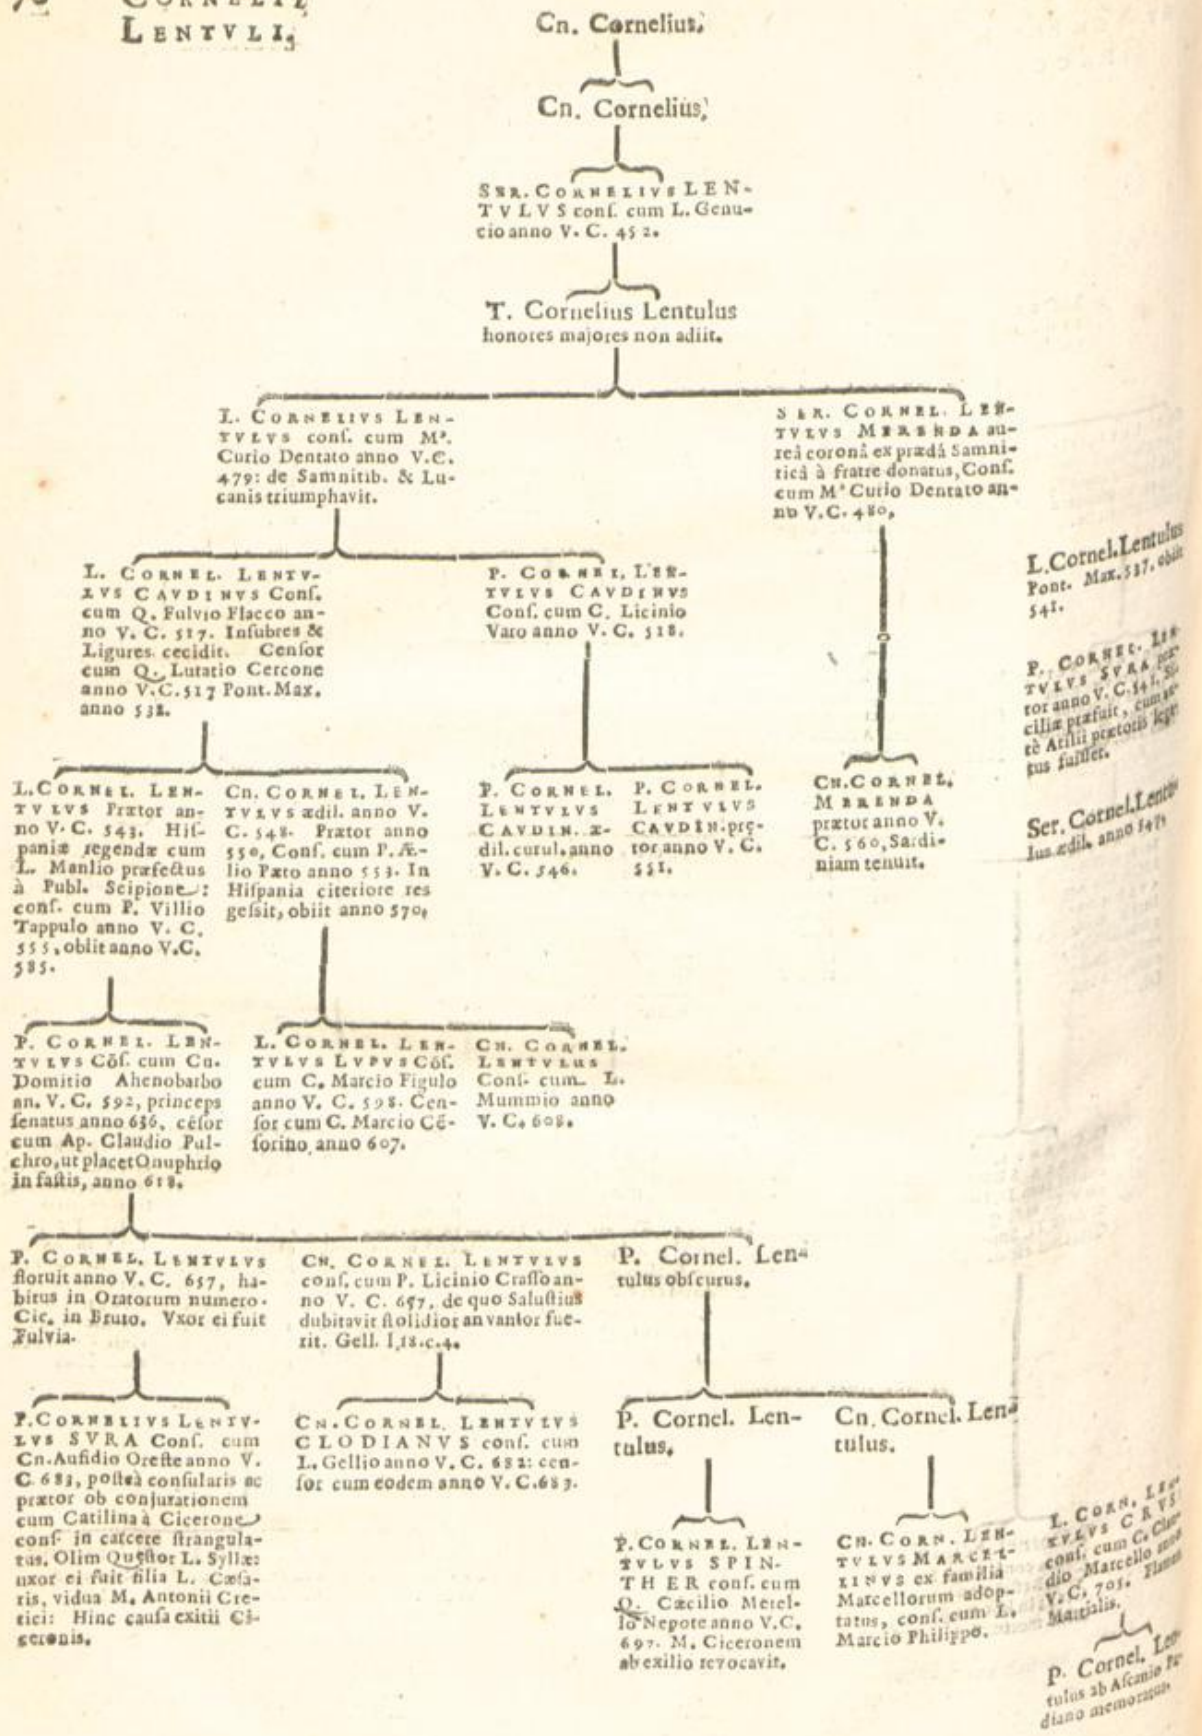 CORNELII,
LENTVLI,
Cn. Cornelius,
Cn. Cornelius,
SER. CORNELIVS LEN-
TVLVS conſ. cum L. Genu-
cio anno V. C. 452.
T. Cornelius Lentulus
honores majores non adiit.
L. CORNELIVS LEN-
TVLVS conſ. cum Mᵃ.
Curio Dentato anno V.C.
479: de Samnitib. & Lu-
canis triumphavit.
SER. CORNEL. LEN-
TVLVS MERENDA au-
reâ coronâ ex prædâ Samni-
ticâ à fratre donatus, Conſ.
cum Mᵃ Curio Dentato an-
no V.C. 480,
L. CORNEL. LENTV-
LVS CAVDINVS Conſ.
cum Q. Fulvio Flacco an-
no V. C. 517. Inſubres &
Ligures cecidit. Cenſor
cum Q. Lutatio Cercone
anno V.C.517 Pont. Max.
anno 532.
P. CORNEL. LEN-
TVLVS CAVDINVS
Conſ. cum C. Licinio
Varo anno V. C. 518.
L. Cornel. Lentulus
Pont. Max. 537. obiit
541.
P. CORNEL. LEN-
TVLVS SVRA præ-
tor anno V. C. 541. Si-
ciliæ præfuit, cum an-
tè Atilii prætoris lega-
tus fuiſſet.
Ser. Cornel. Lentu-
lus ædil. anno 547.
L. CORNEL. LEN-
TVLVS Prætor an-
no V. C. 543. Hiſ-
paniæ regendæ cum
L. Manlio præfectus
à Publ. Scipione:
conſ. cum P. Villio
Tappulo anno V. C.
555, obiit anno V.C.
585.
Cn. CORNEL. LEN-
TVLVS ædil. anno V.
C. 548. Prætor anno
550, Conſ. cum P. Æ-
lio Pæto anno 553. In
Hiſpania citeriore res
geſsit, obiit anno 570,
P. CORNEL.
LENTVLVS
CAVDIN. æ-
dil. curul. anno
V. C. 546.
P. CORNEL.
LENTVLVS
CAVDIN. prę-
tor anno V. C.
551.
CN. CORNEL.
MERENDA
prætor anno V.
C. 560, Sardi-
niam tenuit.
P. CORNEL. LEN-
TVLVS Cõſ. cum Cn.
Domitio Ahenobarbo
an. V. C. 592, princeps
ſenatus anno 636, cẽſor
cum Ap. Claudio Pul-
chro, ut placet Onuphrio
in faſtis, anno 618.
L. CORNEL. LEN-
TVLVS LVPVS Cõſ.
cum C. Marcio Figulo
anno V. C. 598. Cen-
ſor cum C. Marcio Cẽ-
ſorino, anno 607.
CN. CORNEL.
LENTVLUS
Conſ. cum L.
Mummio anno
V. C. 608.
P. CORNEL. LENTVLVS
floruit anno V. C. 657, ha-
bitus in Oratorum numero.
Cic. in Bruto. Vxor ei fuit
Fulvia.
CN. CORNEL. LENTVLVS
conſ. cum P. Licinio Craſſo an-
no V. C. 657, de quo Saluſtius
dubitavit ſtolidior an vanior fue-
rit. Gell. l,18.c.4.
P. Cornel. Len-
tulus obſcurus.
P. CORNELIVS LENTV-
LVS SVRA Conſ. cum
Cn. Aufidio Oreſte anno V.
C. 683, poſteà conſularis ac
prætor ob conjurationem
cum Catilina à Cicerone
conſ. in carcere ſtrangula-
tus. Olim Quęſtor L. Syllæ:
uxor ei fuit filia L. Cæſa-
ris, vidua M. Antonii Cre-
tici: Hinc cauſa exitii Ci-
ceronis.
CN. CORNEL. LENTVLVS
CLODIANVS conſ. cum
L. Gellio anno V. C. 682: cen-
ſor cum eodem anno V. C. 683.
P. Cornel. Len-
tulus.
Cn. Cornel. Len-
tulus.
P. CORNEL. LEN-
TVLVS SPIN-
THER conſ. cum
Q. Cæcilio Metel-
lo Nepote anno V.C.
697. M. Ciceronem
ab exilio revocavit.
CN. CORN. LEN-
TVLVS MARCEL-
LINVS ex familia
Marcellorum adop-
tatus, conſ. cum L.
Marcio Philippo.
L. CORN. LEN-
TVLVS CRVS
conſ. cum C. Clau-
dio Marcello anno
V. C. 705. Flamen
Martialis.
P. Cornel. Len-
tulus ab Aſcanio Pæ-
diano memoratus.